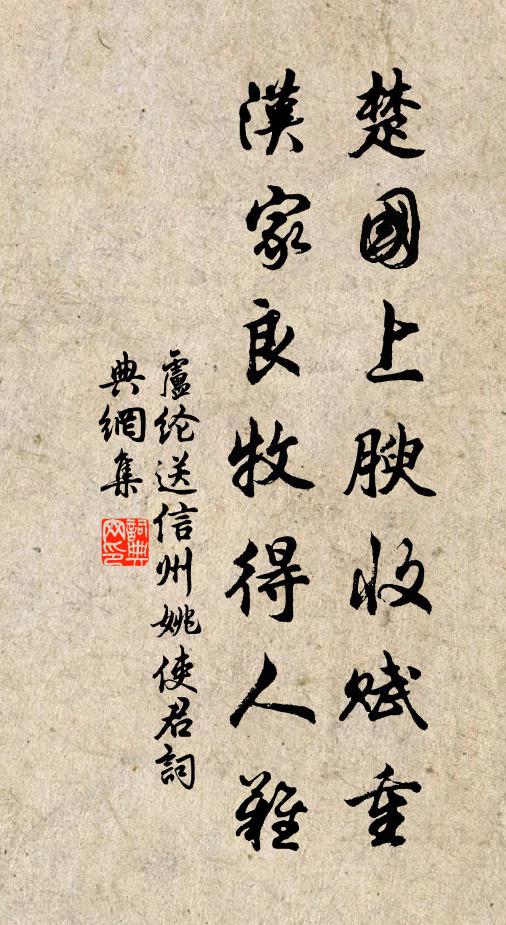 楚國上腴收賦重
漢家良牧得人難
盧纶送信州姚使君詞
典網集
詞典
网印